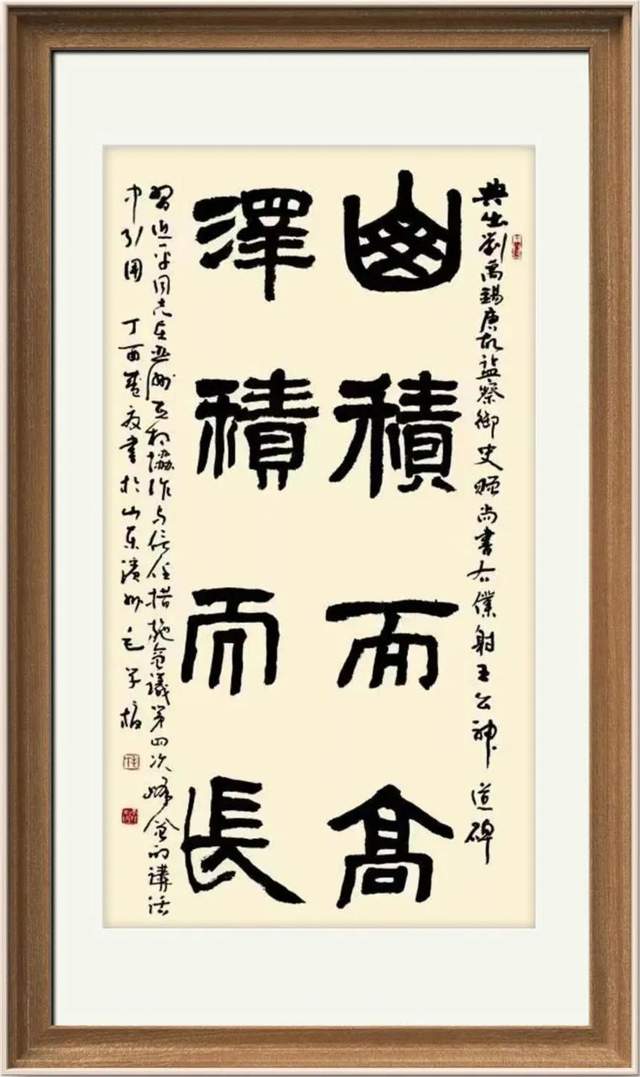 典出劉禹錫唐故監察御史贈尚書右僕射王公神道碑
山積而高
澤積而長
習近平同志在亞洲互相協作与信任措施會議第四次峰會的講話
中引用 丁酉夏書於山东濱州毛学